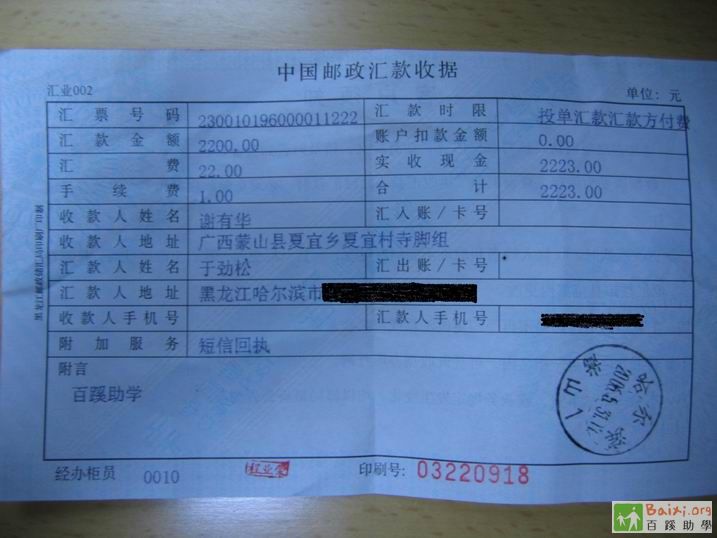 中国邮政汇款收据
汇业002 单位：元
汇票号码 230010196000011222 汇款时限 投单汇款汇款方付费
汇款金额 2200.00 账户扣款金额 0.00
汇费 22.00 实收现金 2223.00
手续费 1.00 合计 2223.00
收款人姓名 谢有华 汇入账/卡号
收款人地址 广西蒙山县夏宜乡夏宜村寺脚组
汇款人姓名 于劲松 汇出账/卡号
汇款人地址 黑龙江哈尔滨市
收款人手机号 汇款人手机号
附加服务 短信回执
附言
百蹊助学
经办柜员 0010 印刷号: 03220918
Baixi.org
百蹊助學